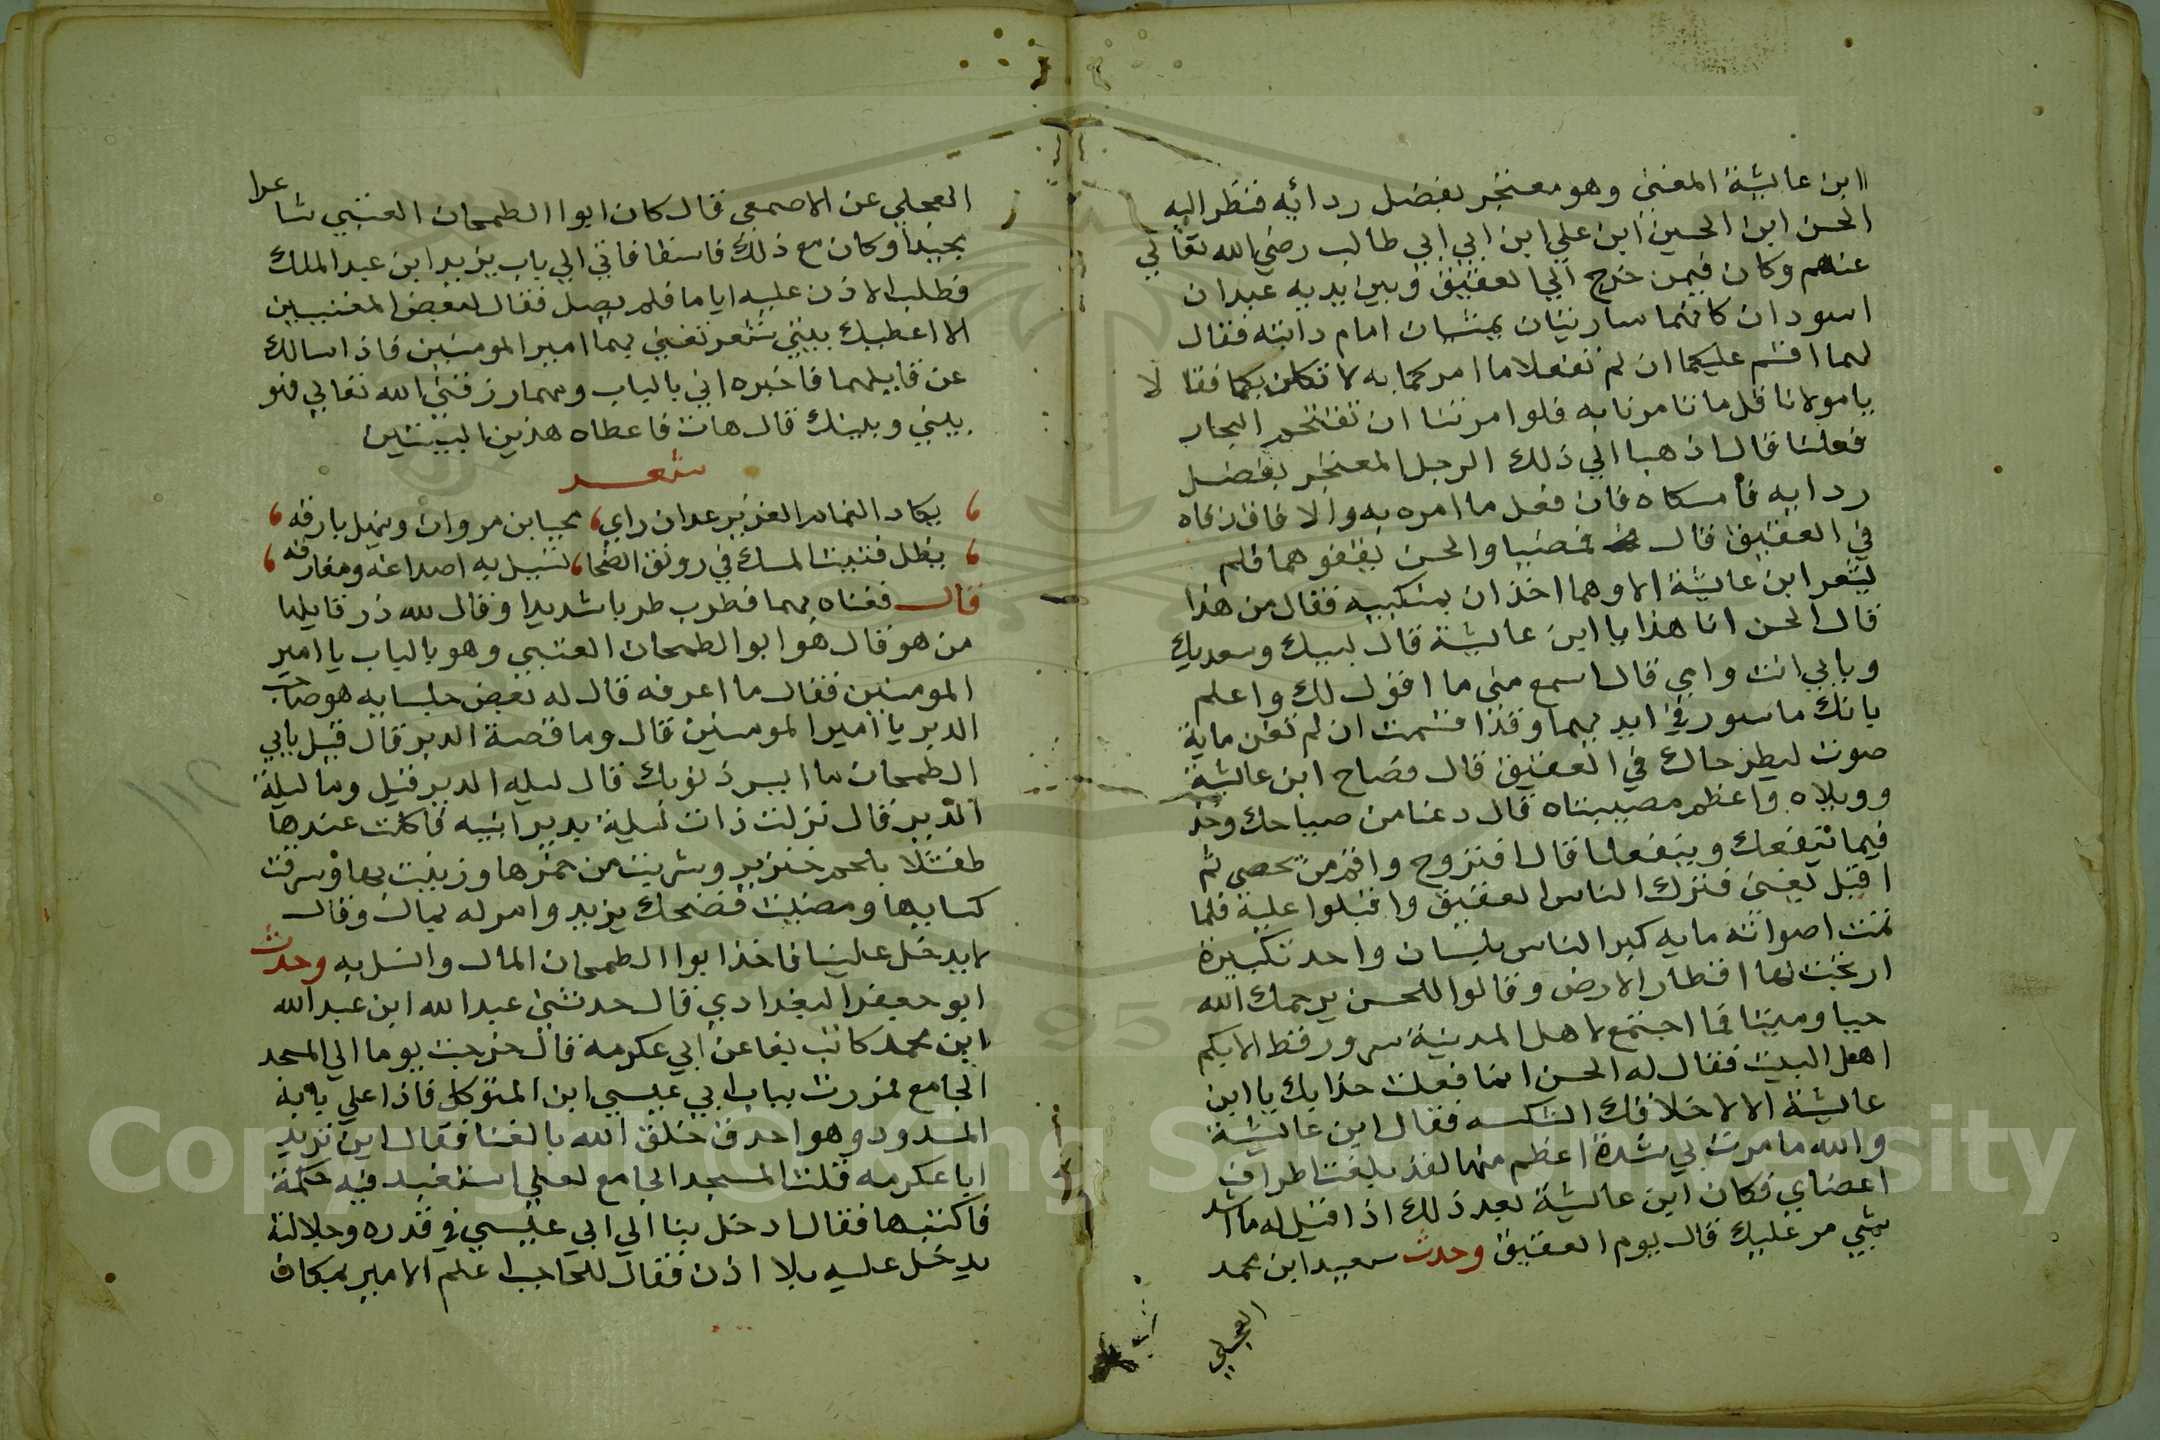 ابن عايشة المغني وهو معتجر بفضل ردائه فنظر اليه
الحسن ابن الحسين ابن علي ابن ابي ابي طالب رضي الله تعالي
عنهم وكان فيمن خرج الي العقيق وبين يديه عبدان
اسودان كانهما ساريتان يمشيان امام دابته فقال
لهما اقسم عليكما ان لم تفعلا ما امركما به لا نكلن بكما فقالا
يا مولانا قل ما تامرنا به فلو امرتنا ان نقتحم البحار
فعلنا قال اذهبا الي ذلك الرجل المعتجر بفضل
ردايه فامسكاه فان فعل ما امره به والا فاقذفاه
في العقيق قال فمضيا والحسن يقفوهما فلم
يشعر ابن عايشة الا وهما اخذان بمنكبيه فقال من هذا
قال الحسن انا هذا يا ابن عايشة قال لبيك وسعديك
وبابي انت وامي قال اسمع مني ما اقول لك واعلم
بانك ماسور في ايديهما وقد اقسمت ان لم تغن ماية
صوت ليطرحاك في العقيق قال فصاح ابن عايشة
وويلاه واعظم مصيبتاه قال دعنا من صياحك وخذ
فيما ينفعك وينفعنا قال اقترح واقم من يحصي ثم
اقبل يغني فترك الناس العقيق واقبلوا عليه فلما
تمت اصواته مايه كبر الناس بلسان واحد تكبيرة
ارتجت لها اقطار الارض وقالوا للحسن يرحمك الله
حيا وميتا فما اجتمع لاهل المدينة سرور قط الا بكم
اهل البيت فقال له الحسن انما فعلت هذا بك يا ابن
عايشة الا لاخلاقك الشكسه فقال ابن عايشة
والله ما مرت بي شدة اعظم منها لقد بلغت اطراف
اعضاي فكان ابن عايشة بعد ذلك اذا قيل له ما اشد
شي مر عليك قال يوم العقيق وحدث سعيد ابن محمد
العجلي
العجلي عن الاصمعي قال كان ابوا الطمحان العتبي شاعرا
مجيدا وكان مع ذلك فاسقا فاتي الي باب يزيد ابن عبد الملك
فطلب الاذن عليه اياما فلم يصل فقال لبعض المغنيين
الا اعطيك بيتي شعر تغني بهما امير المومنين فاذا سالك
عن قايلهما فاخبره اني بالباب ومهما رزقني الله تعالي فهو
بيني وبينك قال هات فاعطاه هذين البيتين
شعر
يكاد الغمام الغر يرعد ان راي محيا ابن مروان وينهل بارقه
يظل فتيت المسك في رونق الضحا تسيل به اصداغه ومفارقه
قال فغناه بهما فطرب طربا شديدا وقال لله در قايلها
من هو قال هو ابو الطمحان العتبي وهو بالباب يا امير
المومنين فقال ما اعرفه قال له بعض جلسايه هو صاحب
الدير يا امير المومنين قال وما قصة الدير قال قيل لابي
الطمحان ما ايسر ذنوبك قال ليله الدير قيل وما ليلة
الدير قال نزلت ذات ليلة بدير انيه فاكلت عندها
طفشلا بلحم خنزير وشربت من خمرها وزنيت بها وسرقت
كسايها ومضيت فضحك يزيد وامر له بمال وقال
لا يدخل علينا فاخذ ابوا الطمحان المال وانسل به وحدث
ابو جعفر البغدادي قال حدثني عبد الله ابن عبد الله
ابن محمد كاتب بغا عن ابي عكرمه قال خرجت يوما الي المسجد
الجامع فمررت بباب ابي عيسي ابن المتوكل فاذا علي بابه
المسدود وهو احذق خلق الله بالغنا فقال اين تريد
ابا عكرمه قلت المسجد الجامع لعلي استفيد فيه حكمة
فاكتبها فقال ادخل بنا الي ابي عيسي في قدره وجلالته
يدخل عليه بلا اذن فقال للحاجب اعلم الامير بمكان
Copyright © King Saud University